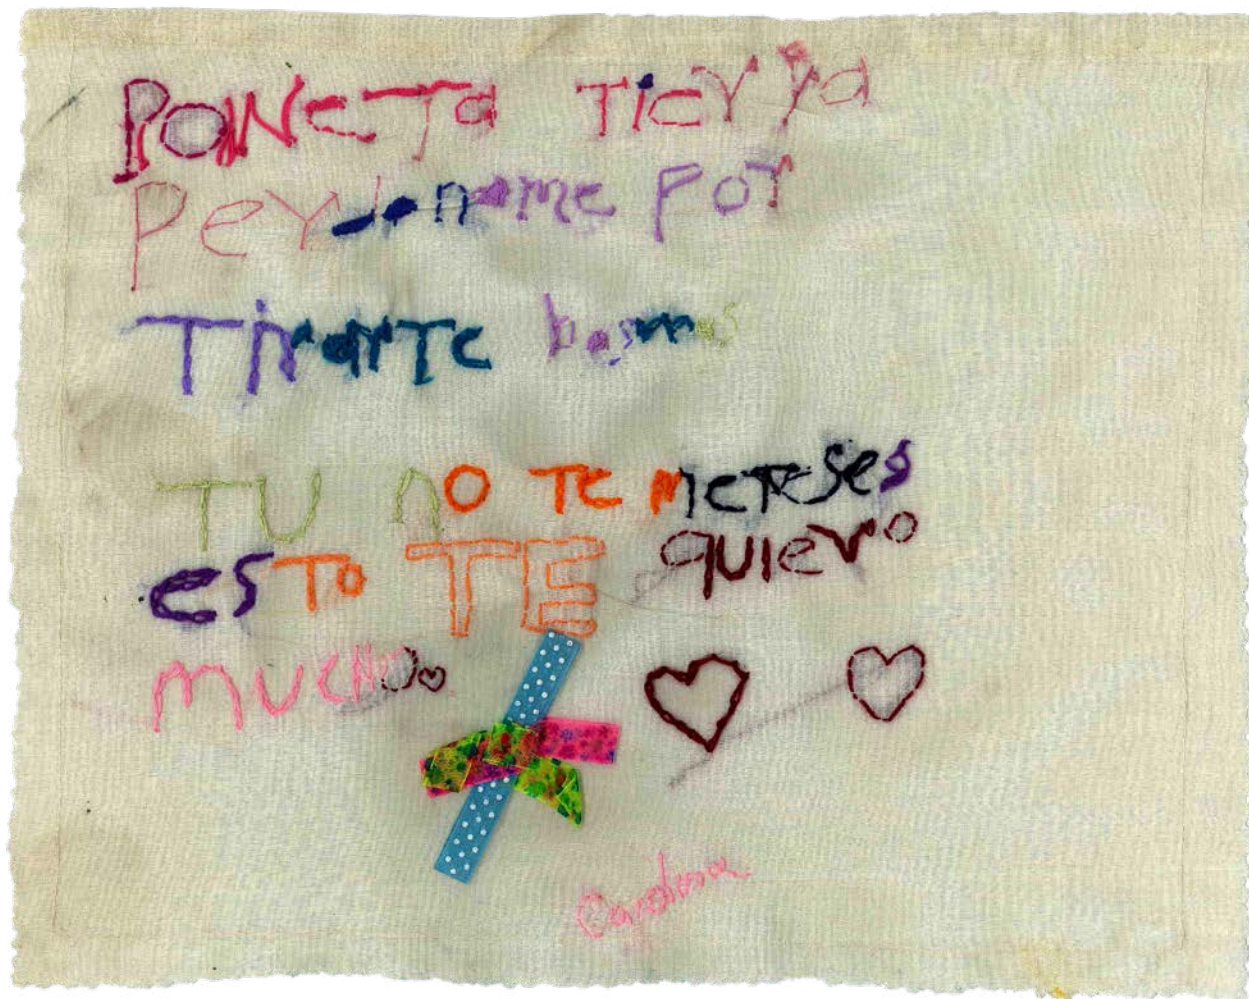 PoNeTa TieRRa
PeRdoname PoR
TiRarTe basuras
TU no Te meTeSes
esTo TE quiero
mucHo
Carolina